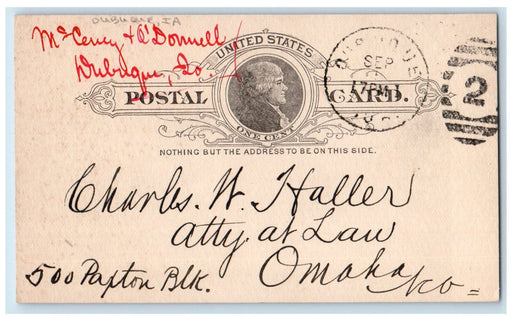 DUBUQUE, IA
McCeney & O'Donnell
Dubuque, Io.
UNITED STATES
POSTAL CARD.
ONE CENT
NOTHING BUT THE ADDRESS TO BE ON THIS SIDE.
DUBUQUE
SEP
PM
2
Charles. W. Haller
atty. at Law
500 Paxton Blk.
Omaha